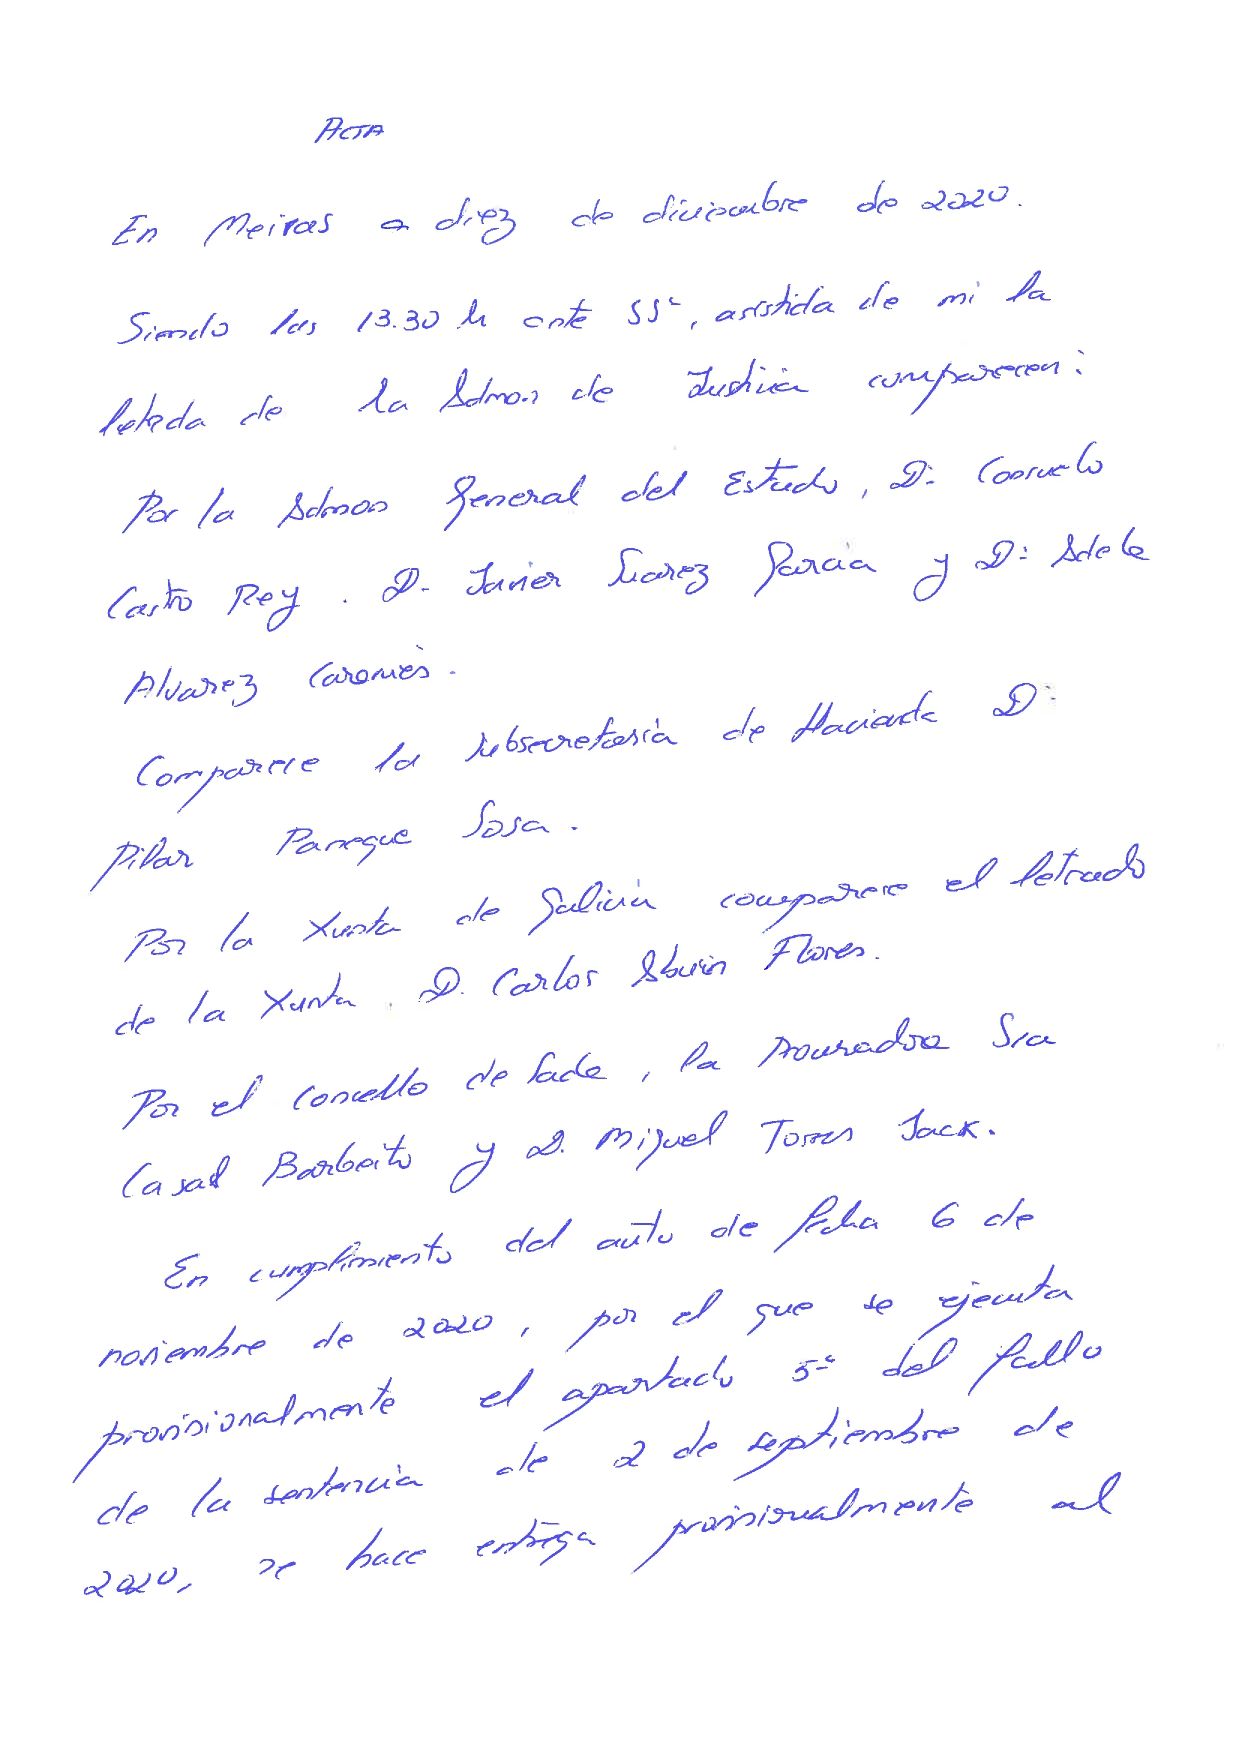 ACTA
En Meiras a diez de diciembre de 2020.
Siendo las 13.30 h ante SSª, asistida de mi la
letrada de la Admon de Justicia comparecen:
Por la Admon General del Estado, Dª Consuelo
Castro Rey. D. Javier Suarez Garcia y Dª Adela
Alvarez Caramés.
Comparece la subsecretaria de Hacienda Dª
Pilar Paneque Sosa.
Por la Xunta de Galicia comparece el letrado
de la Xunta. D. Carlos Abuin Flores.
Por el Concello de Sada, la Procuradora Sra
Casal Barbeito y D. Miguel Torres Jack.
En cumplimiento del auto de fecha 6 de
noviembre de 2020, por el que se ejecuta
provisionalmente el apartado 5º del fallo
de la sentencia de 2 de septiembre de
2020, se hace entrega provisionalmente al